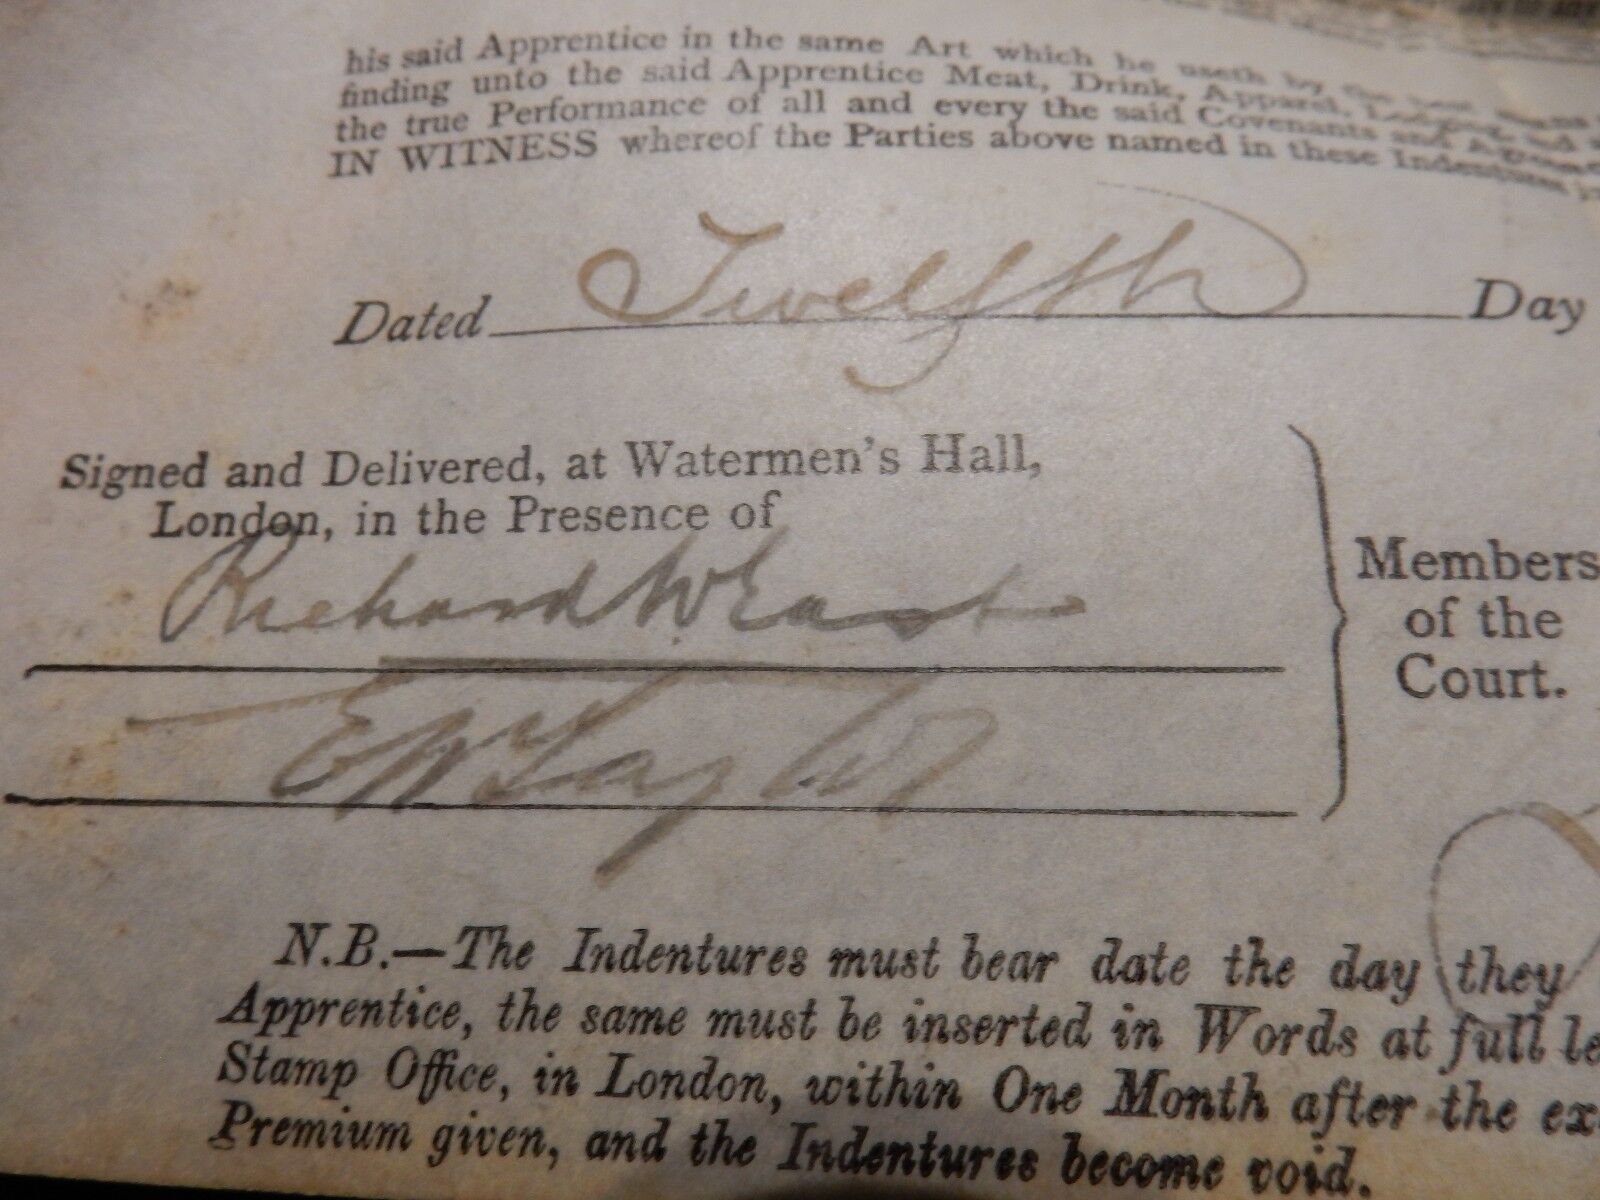 his said Apprentice in the same Art which he useth by the best
finding unto the said Apprentice Meat, Drink, Apparel, Lodging and
the true Performance of all and every the said Covenants and
IN WITNESS whereof the Parties above named in these Indentures
Dated Twelfth Day
Signed and Delivered, at Watermen's Hall,
London, in the Presence of
Richard W East
E W Taylor
Members
of the
Court.
N.B.—The Indentures must bear date the day they
Apprentice, the same must be inserted in Words at full le
Stamp Office, in London, within One Month after the ex
Premium given, and the Indentures become void.